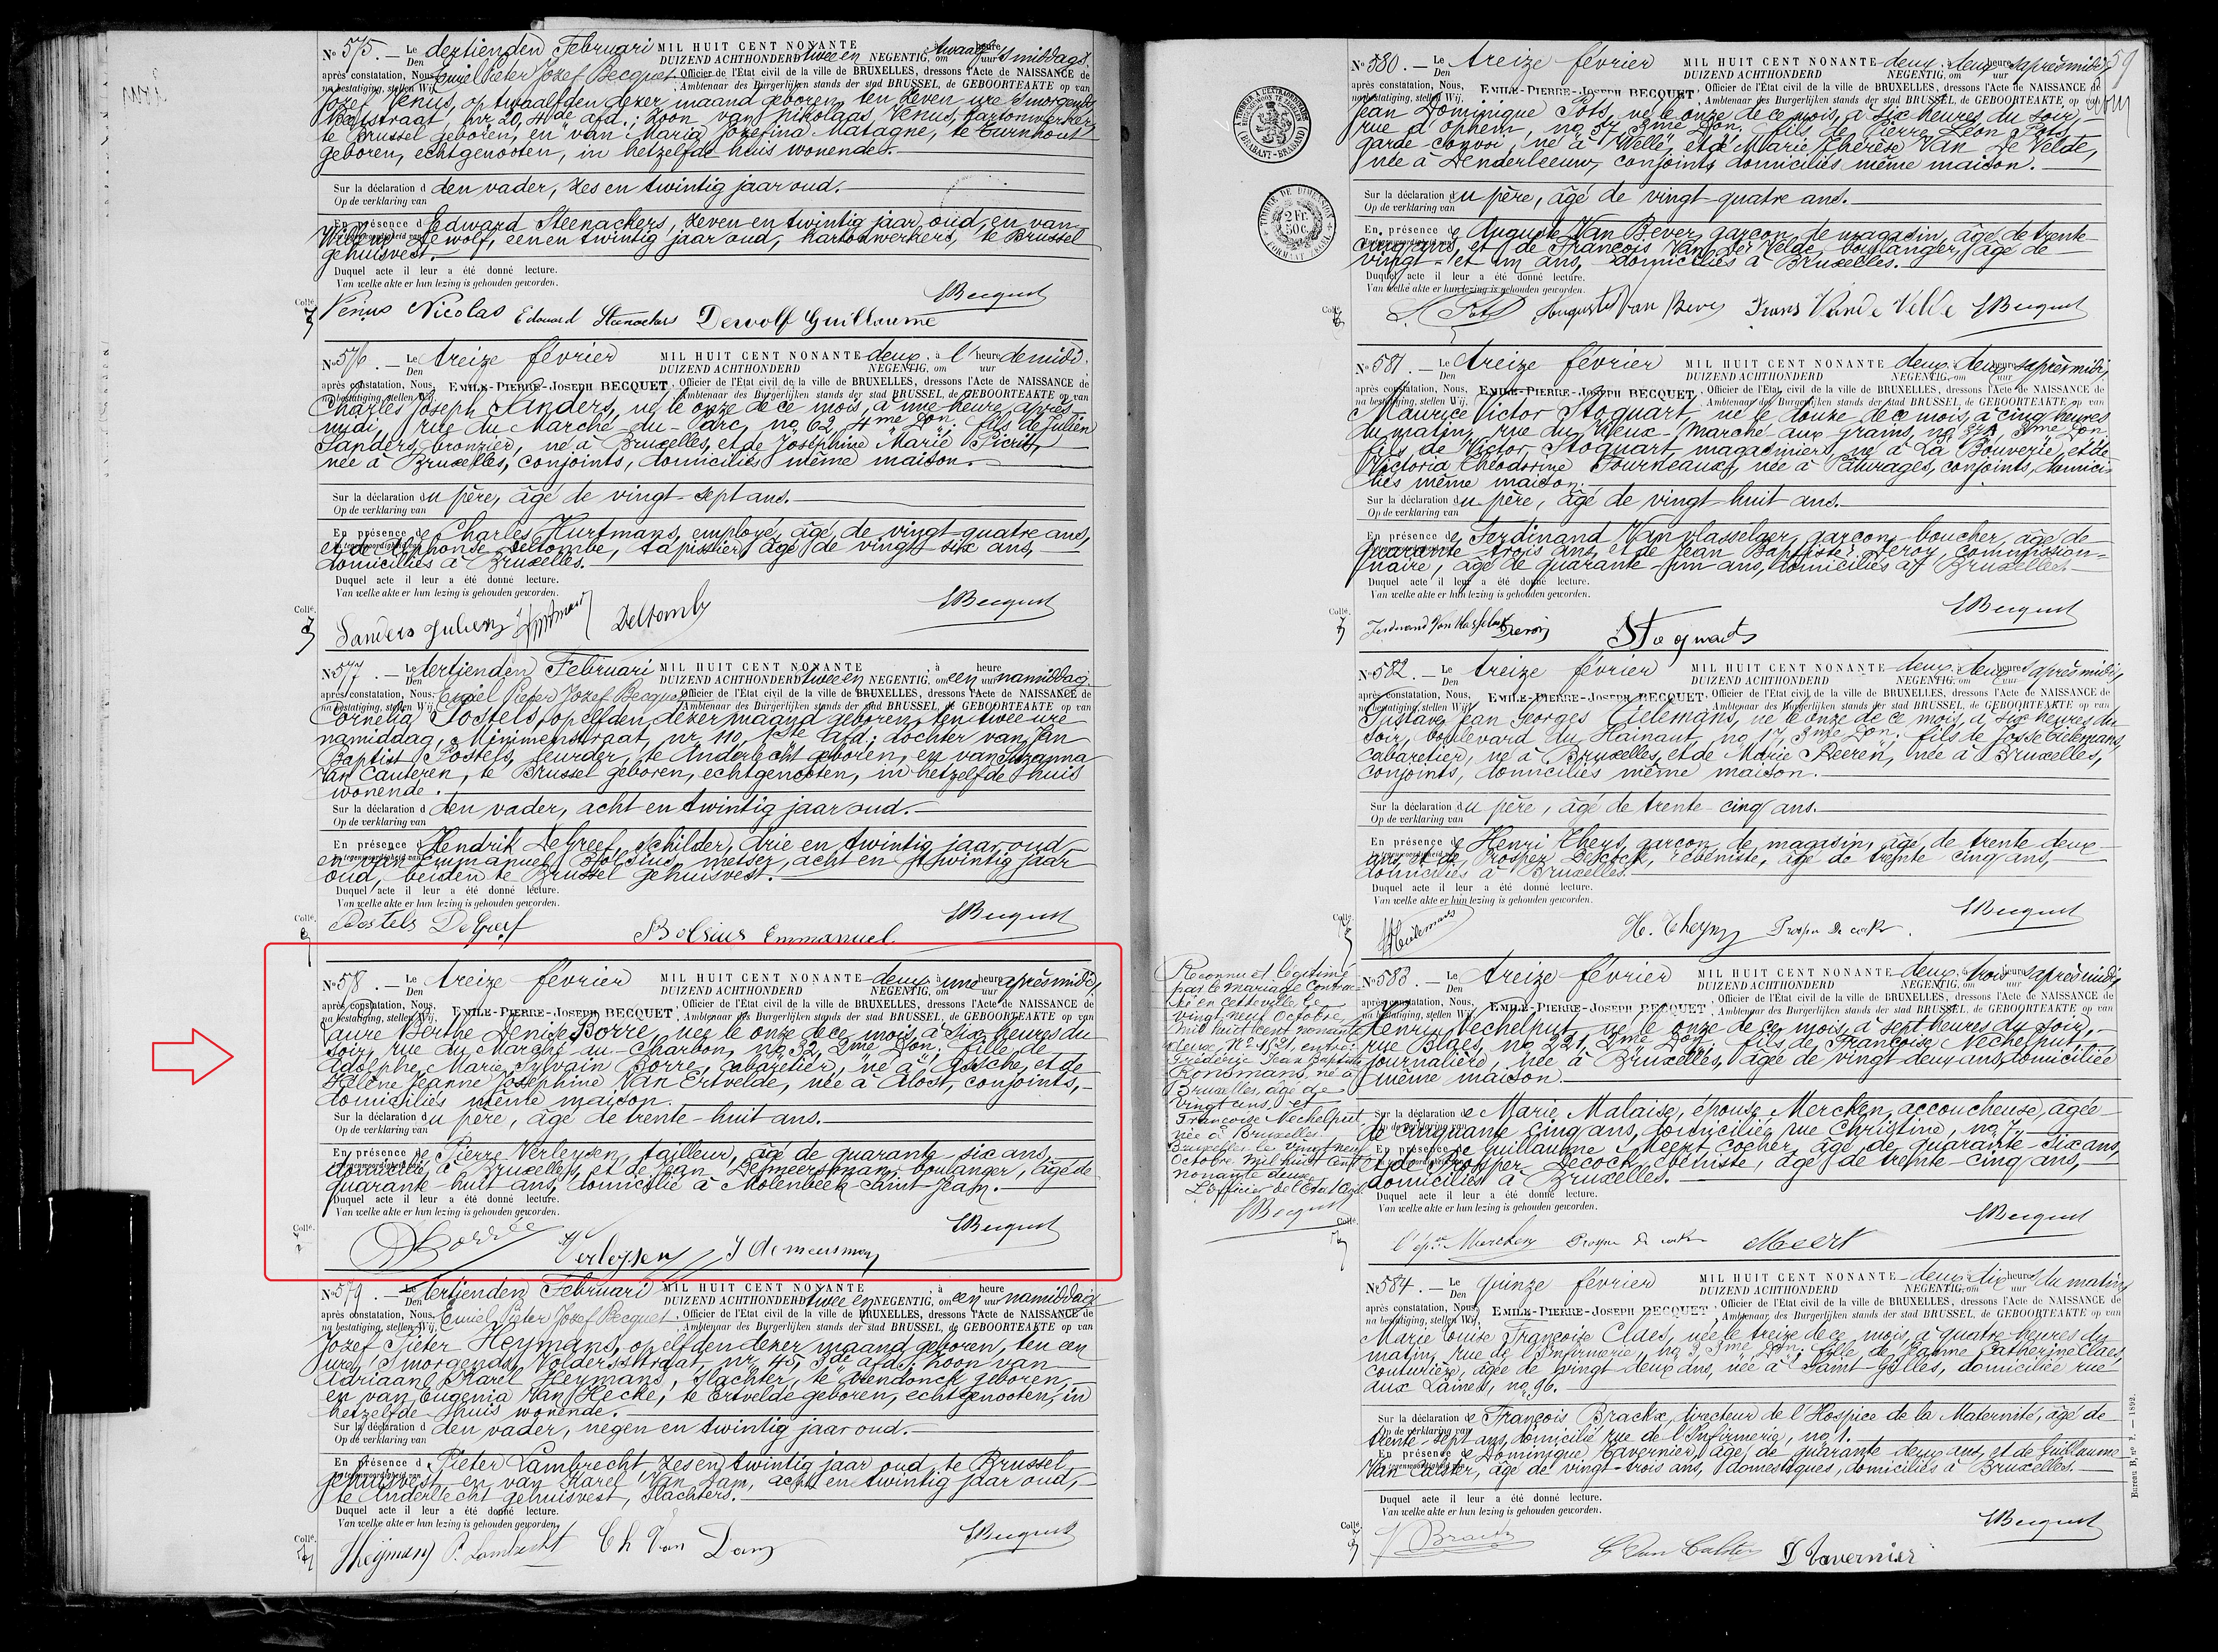 No 575. — Le Den dertienden Februari MIL HUIT CENT NONANTE à twaalf heure
DUIZEND ACHTHONDERD twee en NEGENTIG, om uur 's middags
après constatation, Nous, Emiel Pieter Jozef Becquet, Officier de l'État civil de la ville de BRUXELLES, dressons l'Acte de NAISSANCE de
na bestatiging, stellen Wij, Ambtenaar des Burgerlijken stands der stad BRUSSEL, de GEBOORTEAKTE op van
Jozef Venus, op twaalfden dezer maand geboren, ten zeven ure 's morgends,
straat, nr 20, 4de afd.; zoon van Nikolaas Venus, kartonwerker,
te Brussel geboren, en van Maria Jozefina Matagne, te Turnhout
geboren, echtgenooten, in hetzelfde huis wonende.
Sur la déclaration d den vader, zes en twintig jaar oud.
Op de verklaring van
En présence d Edward Steenackers, zeven en twintig jaar oud, en van
Willem Dewolf, eenen twintig jaar oud, kartonwerkers, te Brussel
gehuisvest.
Duquel acte il leur a été donné lecture.
Van welke akte er hun lezing is gehouden geworden.
Collé
Venus Nicolas Edouard Steenackers Dewolf Guillaume EBecquet
No 576. — Le Den treize février MIL HUIT CENT NONANTE deux, à l' heure de midi.
DUIZEND ACHTHONDERD NEGENTIG, om uur
après constatation, Nous, EMILE-PIERRE-JOSEPH BECQUET, Officier de l'État civil de la ville de BRUXELLES, dressons l'Acte de NAISSANCE de
na bestatiging, stellen Wij, Ambtenaar des Burgerlijken stands der stad BRUSSEL, de GEBOORTEAKTE op van
Charles Joseph Sanders, né le onze de ce mois, à une heure après-
midi, rue du Marché-du-Parc, no 62, 4me Don; fils de Julien
Sanders, bronzier, né à Bruxelles, et de Joséphine Marie
née à Bruxelles, conjoints, domiciliés même maison.
Sur la déclaration du père, âgé de vingt-sept ans.
Op de verklaring van
En présence de Charles Hurtmans, employé, âgé de vingt-quatre ans,
et de Alphonse Deltombe, tapissier, âgé de vingt-six ans,
domiciliés à Bruxelles.
Duquel acte il leur a été donné lecture.
Van welke akte er hun lezing is gehouden geworden.
Collé
Sanders Julien Hurtmans Deltombe EBecquet
No 577. — Le Den dertienden Februari MIL HUIT CENT NONANTE à heure
DUIZEND ACHTHONDERD twee en NEGENTIG, om een uur namiddag
après constatation, Nous, Emiel Pieter Jozef Becquet, Officier de l'État civil de la ville de BRUXELLES, dressons l'Acte de NAISSANCE de
na bestatiging, stellen Wij, Ambtenaar des Burgerlijken stands der stad BRUSSEL, de GEBOORTEAKTE op van
Cornelia Postels, op elfden dezer maand geboren, ten twee ure
namiddag, Minimenstraat, nr 110, 1ste afd.; dochter van Jan
Baptist Postels, leurder, te Anderlecht geboren, en van Suzanna
Van Cauteren, te Brussel geboren, echtgenooten, in hetzelfde huis
wonende.
Sur la déclaration d den vader, acht en twintig jaar oud.
Op de verklaring van
En présence d Hendrik De Greef, schilder, drie en twintig jaar oud,
en van Emmanuel Bolsius, metser, acht en twintig jaar
oud, beiden te Brussel gehuisvest.
Duquel acte il leur a été donné lecture.
Van welke akte er hun lezing is gehouden geworden.
Collé
Postels De Greef Bolsius Emmanuel EBecquet
No 578. — Le Den treize février MIL HUIT CENT NONANTE deux, à une heure après midi,
DUIZEND ACHTHONDERD NEGENTIG, om uur
après constatation, Nous, EMILE-PIERRE-JOSEPH BECQUET, Officier de l'État civil de la ville de BRUXELLES, dressons l'Acte de NAISSANCE de
na bestatiging, stellen Wij, Ambtenaar des Burgerlijken stands der stad BRUSSEL, de GEBOORTEAKTE op van
Laure Berthe Denise Borré, née le onze de ce mois, à six heures du
soir, rue du Marché-au-Charbon, no 32, 2me Don; fille de
Adolphe Marie Sylvain Borré, cabaretier, né à Assche, et de
Hélène Jeanne Joséphine Van Ertvelde, née à Alost, conjoints,
domiciliés même maison.
Sur la déclaration du père, âgé de trente-huit ans.
Op de verklaring van
En présence de Pierre Verleysen, tailleur, âgé de quarante-six ans,
domicilié à Bruxelles, et de Jean Demeersman, boulanger, âgé de
quarante-huit ans, domicilié à Molenbeek-Saint-Jean.
Duquel acte il leur a été donné lecture.
Van welke akte er hun lezing is gehouden geworden.
Collé
Borré Verleysen J Demeersman EBecquet
No 579. — Le Den dertienden Februari MIL HUIT CENT NONANTE à heure
DUIZEND ACHTHONDERD twee en NEGENTIG, om een uur namiddag
après constatation, Nous, Emiel Pieter Jozef Becquet, Officier de l'État civil de la ville de BRUXELLES, dressons l'Acte de NAISSANCE de
na bestatiging, stellen Wij, Ambtenaar des Burgerlijken stands der stad BRUSSEL, de GEBOORTEAKTE op van
Jozef Pieter Heymans, op elfden dezer maand geboren, ten een
ure 's morgends, Voldersstraat, nr 45, 3de afd.; zoon van
Adriaan Karel Heymans, slachter, te geboren,
en van Eugenia Van Hecke, te Ertvelde geboren, echtgenooten, in
hetzelfde huis wonende.
Sur la déclaration d den vader, negen en twintig jaar oud.
Op de verklaring van
En présence d Pieter Lambrecht, zes en twintig jaar oud, te Brussel
gehuisvest, en van Karel Van Dam, acht en twintig jaar oud,
te Anderlecht gehuisvest, slachters.
Duquel acte il leur a été donné lecture.
Van welke akte er hun lezing is gehouden geworden.
Collé
Heymans P. Lambrecht Ch Van Dam EBecquet
59
No 580. — Le Den treize février MIL HUIT CENT NONANTE deux, à deux heures après midi,
DUIZEND ACHTHONDERD NEGENTIG, om uur
après constatation, Nous, EMILE-PIERRE-JOSEPH BECQUET, Officier de l'État civil de la ville de BRUXELLES, dressons l'Acte de NAISSANCE de
na bestatiging, stellen Wij, Ambtenaar des Burgerlijken stands der stad BRUSSEL, de GEBOORTEAKTE op van
Jean Dominique Pots, né le onze de ce mois, à six heures du soir,
rue d'Ophem, no 37, 3me Don; fils de Pierre Léon Pots,
garde-convoi, né à Welle, et de Marie Thérèse Van De Velde,
née à Denderleeuw, conjoints, domiciliés même maison.
Sur la déclaration du père, âgé de vingt-quatre ans.
Op de verklaring van
En présence de Auguste Van Bever, garçon de magasin, âgé de trente-
cinq ans, et de François Van De Velde, boulanger, âgé de
vingt-et un ans, domiciliés à Bruxelles.
Duquel acte il leur a été donné lecture.
Van welke akte er hun lezing is gehouden geworden.
TIMBRE DE DIMENSION
2 Fr. 50 c.
Collé
Pots Auguste Van Bever Frans Van de Velde EBecquet
No 581. — Le Den treize février MIL HUIT CENT NONANTE deux, à deux heures après midi,
DUIZEND ACHTHONDERD NEGENTIG, om uur
après constatation, Nous, EMILE-PIERRE-JOSEPH BECQUET, Officier de l'État civil de la ville de BRUXELLES, dressons l'Acte de NAISSANCE de
na bestatiging, stellen Wij, Ambtenaar des Burgerlijken stands der stad BRUSSEL, de GEBOORTEAKTE op van
Maurice Victor Stoquart, né le douze de ce mois, à cinq heures
du matin, rue du Vieux-Marché-aux-Grains, no 3me Don;
fils de Victor Stoquart, magasinier, né à La Bouverie, et de
Victoria Théodorine Fourneaux, née à Pâturages, conjoints, domici-
liés même maison.
Sur la déclaration du père, âgé de vingt-huit ans.
Op de verklaring van
En présence de Ferdinand Van Vlasselaer, garçon-boucher, âgé de
quarante-trois ans, et de Jean Baptiste Deroy, commission-
naire, âgé de quarante-un ans, domiciliés à Bruxelles.
Duquel acte il leur a été donné lecture.
Van welke akte er hun lezing is gehouden geworden.
Collé
Deroy Stoquart EBecquet
No 582. — Le Den treize février MIL HUIT CENT NONANTE deux, à deux heures après midi,
DUIZEND ACHTHONDERD NEGENTIG, om uur
après constatation, Nous, EMILE-PIERRE-JOSEPH BECQUET, Officier de l'État civil de la ville de BRUXELLES, dressons l'Acte de NAISSANCE de
na bestatiging, stellen Wij, Ambtenaar des Burgerlijken stands der stad BRUSSEL, de GEBOORTEAKTE op van
Gustave Jean Georges Tielemans, né le onze de ce mois, à six heures du
soir, boulevard du Hainaut, no 17, 3me Don; fils de Josse Tielemans,
cabaretier, né à Bruxelles, et de Marie Peeren, née à Bruxelles,
conjoints, domiciliés même maison.
Sur la déclaration du père, âgé de trente-cinq ans.
Op de verklaring van
En présence de Henri Theys, garçon de magasin, âgé de trente deux
ans, et de Prosper Decock, ébéniste, âgé de trente-cinq ans,
domiciliés à Bruxelles.
Duquel acte il leur a été donné lecture.
Van welke akte er hun lezing is gehouden geworden.
Collé
Tielemans H. Theys Prosper De cock EBecquet
Reconnu et légitimé
par le mariage contrac-
té en cette ville le
vingt neuf Octobre
mil huit cent nonante
deux, No 1621, entre:
Frédéric Jean Baptiste
Ronsmans, né à
Bruxelles, âgé de
vingt ans, et
Françoise Nechelput
née à Bruxelles
Bruxelles, le vingt neuf
Octobre mil huit cent
nonante deux
L'Officier de l'Etat Civil
EBecquet
No 583. — Le Den treize février MIL HUIT CENT NONANTE deux, à trois heures après midi,
DUIZEND ACHTHONDERD NEGENTIG, om uur
après constatation, Nous, EMILE-PIERRE-JOSEPH BECQUET, Officier de l'État civil de la ville de BRUXELLES, dressons l'Acte de NAISSANCE de
na bestatiging, stellen Wij, Ambtenaar des Burgerlijken stands der stad BRUSSEL, de GEBOORTEAKTE op van
Henri Nechelput, né le onze de ce mois, à sept heures du soir,
rue Blaes, no 221, 2me Don; fils de Françoise Nechelput,
journalière, née à Bruxelles, âgée de vingt deux ans, domiciliée
même maison.
Sur la déclaration de Marie Malaise, épouse Mercken, accoucheuse, âgée
Op de verklaring van
de cinquante cinq ans, domiciliée rue Christine, no 7.
En présence de Guillaume Meert, cocher, âgé de quarante-six ans,
et de Prosper Decock, ébéniste, âgé de trente-cinq ans,
domiciliés à Bruxelles.
Duquel acte il leur a été donné lecture.
Van welke akte er hun lezing is gehouden geworden.
Collé
l'épse Mercken Prosper De cock Meert EBecquet
No 584. — Le Den quinze février MIL HUIT CENT NONANTE deux, à dix heures du matin,
DUIZEND ACHTHONDERD NEGENTIG, om uur
après constatation, Nous, EMILE-PIERRE-JOSEPH BECQUET, Officier de l'État civil de la ville de BRUXELLES, dressons l'Acte de NAISSANCE de
na bestatiging, stellen Wij, Ambtenaar des Burgerlijken stands der stad BRUSSEL, de GEBOORTEAKTE op van
Marie Louise Françoise Claes, née le treize de ce mois, à quatre heures du
matin, rue de l'Infirmerie, no 3 3me Don; fille de Jeanne Catherine Claes,
couturière, âgée de vingt deux ans, née à Saint-Gilles, domiciliée rue
aux Laines, no 96.
Sur la déclaration de François Brackx, directeur de l'Hospice de la Maternité, âgé de
Op de verklaring van
trente-sept ans, domicilié rue de l'Infirmerie, no 1.
En présence de Dominique Tavernier, âgé de quarante deux ans, et de Guillaume
Van Calster, âgé de vingt-trois ans, domestiques, domiciliés à Bruxelles.
Duquel acte il leur a été donné lecture.
Van welke akte er hun lezing is gehouden geworden.
Collé
F Brackx G Van Calster D Tavernier EBecquet
Bureau B, no 2. — 1892.